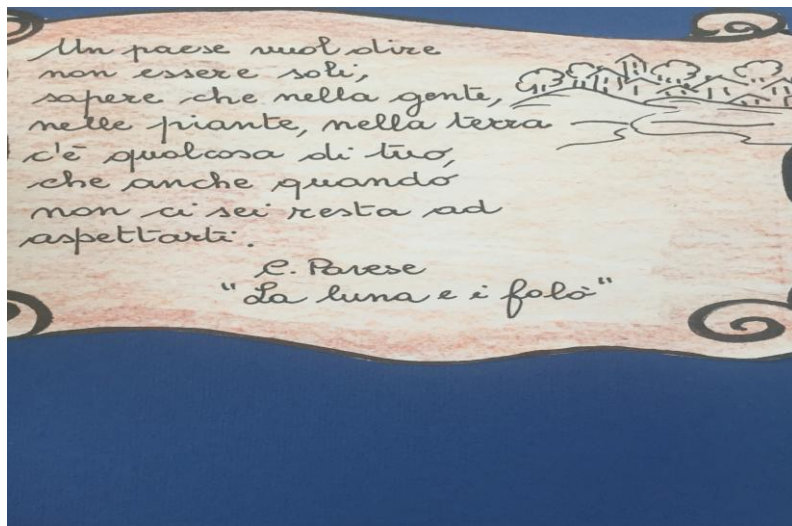 Un paese vuol dire
non essere soli,
sapere che nella gente,
nelle piante, nella terra
c'è qualcosa di tuo,
che anche quando
non ci sei resta ad
aspettarti.
C. Pavese
"La luna e i falò"